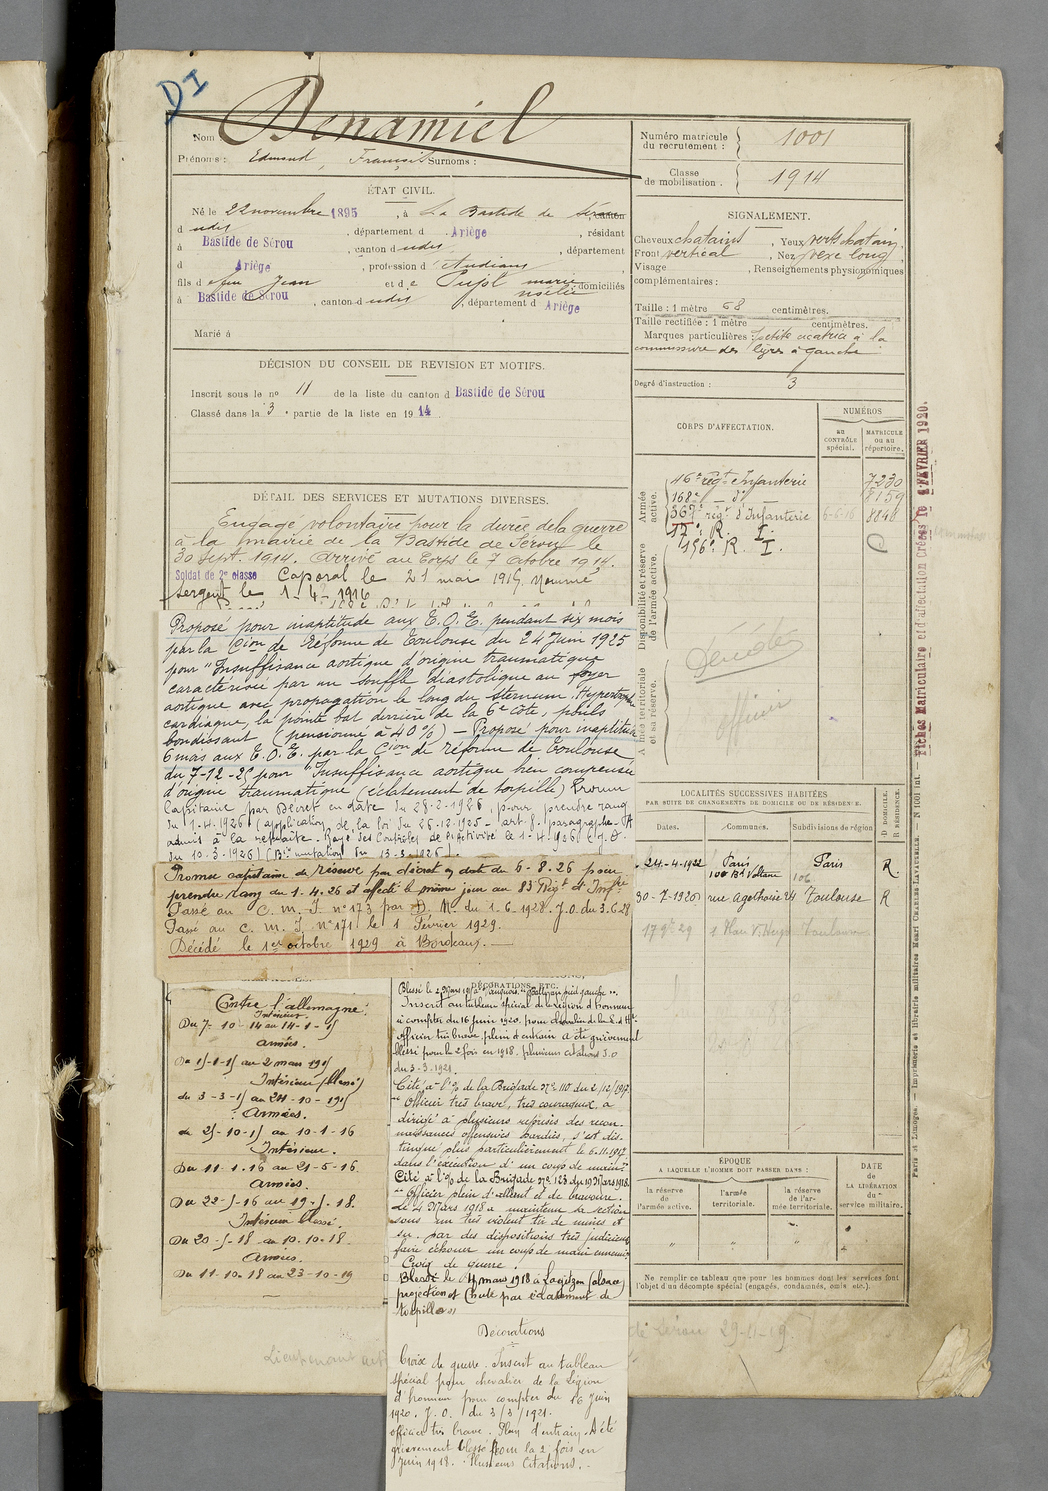 DI
Nom Benamiel
Prénoms : Edmond, François Surnoms :
ÉTAT CIVIL.
Né le 22 novembre 1895, à La Bastide de Sérou canton
d udit, département d Ariège, résidant
à Bastide de Sérou, canton d udit, département
d Ariège, profession d'étudiant
fils d e feu Jean et d e Pujol marie noélie domiciliés
à Bastide de Sérou, canton d udit, département d Ariège
Marié à
DÉCISION DU CONSEIL DE REVISION ET MOTIFS.
Inscrit sous le nº 11 de la liste du canton d Bastide de Sérou
Classé dans la 3e partie de la liste en 1914
DÉTAIL DES SERVICES ET MUTATIONS DIVERSES.
Engagé volontaire pour la durée de la guerre
à la mairie de La Bastide de Serou le
30 Sept. 1914. Arrivé au Corps le 7 Octobre 1914.
Soldat de 2e classe Caporal le 21 mai 1915, Nommé
Sergent le 1-4-1916
Proposé pour inaptitude aux T.O.E. pendant six mois
par la Cion de Réforme de Toulouse du 24 Juin 1925
pour "Insuffisance aortique d'origine traumatique
caractérisée par un souffle diastolique au foyer
aortique avec propagation le long du sternum. Hypertrophie
cardiaque, la pointe bat derrière de la 6e côte, pouls
bondissant (pensionné à 40%) – Proposé pour inaptitude
6 mois aux T.O.E. par la Cion de réforme de Toulouse
du 7-12-25 pour "Insuffisance aortique bien compensée
d'origine traumatique (éclatement de torpille) Promu
Capitaine par Décret en date du 28-2-1926 pour prendre rang
du 1-4-1926 (application de la loi du 25-12-1925 - art. 1. paragraphe A
admis à la retraite. Rayé des Contrôles de l'activité le 1-4-1926 (J.O.
du 10-3-1926) (Bon mutation du 13-3-1926).
Promu capitaine de réserve par décret en date du 6-8-26 pour
prendre rang du 1.4.26 et affecté le même jour au 83e Régt d'Infrie
Passé au C.M.I. nº 173 par D.M. du 1-6-1928. J.O. du 3.6.28
Passé au C.M.I. nº 171 le 1 Février 1929.
Décédé le 1er octobre 1929 à Bordeaux.
Contre l'allemagne :
Intérieur.
Du 7-10-14 au 14-1-15
armées.
Du 15-1-15 au 2 mars 1915
Intérieur (blessé)
du 3-3-15 au 24-10-1915
Armées.
du 25-10-15 au 10-1-16
Intérieur.
Du 11-1-16 au 21-5-16.
Armées.
Du 22-5-16 au 19-5-18.
Intérieur blessé.
Du 20-5-18 au 10.10.18
Armées.
Du 11-10-18 au 23-10-19
DÉCORATIONS, ETC.
Blessé le 2 Mars 1915
Inscrit au tableau spécial de la légion d'honneur
à compter du 16 juin 1920. pour chevalier de la L. d'H.
officier très brave, plein d'entrain a été grièvement
blessé pour la 2 fois en 1918. plusieurs citations J.O
du 3-3-1921.
Cité à l'% de la Brigade nº 110 du 2/12/1917
"Officier très brave, très courageux, a
dirigé à plusieurs reprises des recon-
naissances offensives hardies, s'est dis-
tingué plus particulièrement le 6.11.1917
dans l'exécution d'un coup de main"
Cité à l'% de la Brigade nº 123 du 19 Mars 1918.
"Officier plein d'allant et de bravoure.
Le 4 Mars 1918 a maintenu sa section
sous un très violent tir de mines et
su, par des dispositions très judicieuses
faire échouer un coup de main ennemi
Croix de guerre.
Blessé le 4 mars 1918 à Largitzen (alsace)
projection et Chute par éclatement de
torpilles"
Décorations
Croix de guerre. Inscrit au tableau
spécial pour chevalier de la Légion
d'honneur pour compter du 16 Juin
1920. J.O. du 3/3/1921.
officier très brave. Plein d'entrain. A été
grièvement blessé pour la 2 fois en
Juin 1918. Plusieurs Citations.
Lieutenant
de Sérou 29-11-19.
Numéro matricule du recrutement : 1001
Classe de mobilisation. 1914
SIGNALEMENT.
Cheveux chatains, Yeux verts chatain,
Front vertical, Nez vexe long,
Visage , Renseignements physionomiques
complémentaires :
Taille : 1 mètre 68 centimètres.
Taille rectifiée : 1 mètre centimètres.
Marques particulières : petite cicatrice à la
commissure des lèvres à gauche
Degré d'instruction : 3
CORPS D'AFFECTATION.
NUMÉROS
au CONTRÔLE spécial.
MATRICULE ou au répertoire.
Armée active.
46e régt Infanterie 7230
168e – do 8159
367e régt d'Infanterie 6-6-16 8848
R. I.
156e R. I.
Disponibilité et réserve de l'armée active.
Armée territoriale et sa réserve.
officier
Fiches Matriculaire et d'affectation Créées le 4 FÉVRIER 1920.
LOCALITÉS SUCCESSIVES HABITÉES
PAR SUITE DE CHANGEMENTS DE DOMICILE OU DE RÉSIDENCE.
Dates. Communes. Subdivisions de région D. DOMICILE. R. RÉSIDENCE.
24-4-1922 Paris 100 Bd Voltaire Paris 106 R.
30-7-1920 rue agathoise 24 Toulouse R
1 Place V. Hugo Toulouse
ÉPOQUE
A LAQUELLE L'HOMME DOIT PASSER DANS :
la réserve de l'armée active.
l'armée territoriale.
la réserve de l'armée territoriale.
DATE de LA LIBÉRATION du service militaire.
Ne remplir ce tableau que pour les hommes dont les services font
l'objet d'un décompte spécial (engagés, condamnés, omis etc.).
Paris et Limoges. — Imprimerie et librairie militaires Henri CHARLES-LAVAUZELLE. — N 1001 int.